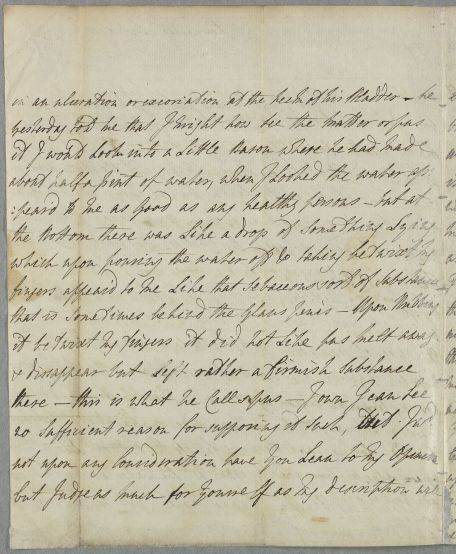 in an ulceration or excoriation at the neck of his Bladder - he
yesterday told me that I might now see the matter or pus
if I would look into a Little Bason where he had made
about half a pint of water, when I looked the water ap:
:peard to me as Good as any healthy persons - but at
the Bottom there was Like a drop of Something Lying
which upon pouring the water off & taking betwixt my
fingers appeard to me Like that sebaceous sort of substance
that is Sometimes behind the Glans penis - Upon rubbing
it betwixt my fingers it did not Like pus melt away
& disappear but left rather a firmish Substance
there - this is what he Calls pus - I own I can see
no Sufficient reason for supposing it such, but I
not upon any Consideration have you Lean to my Opinion
but Judge as much for yourself as my description will